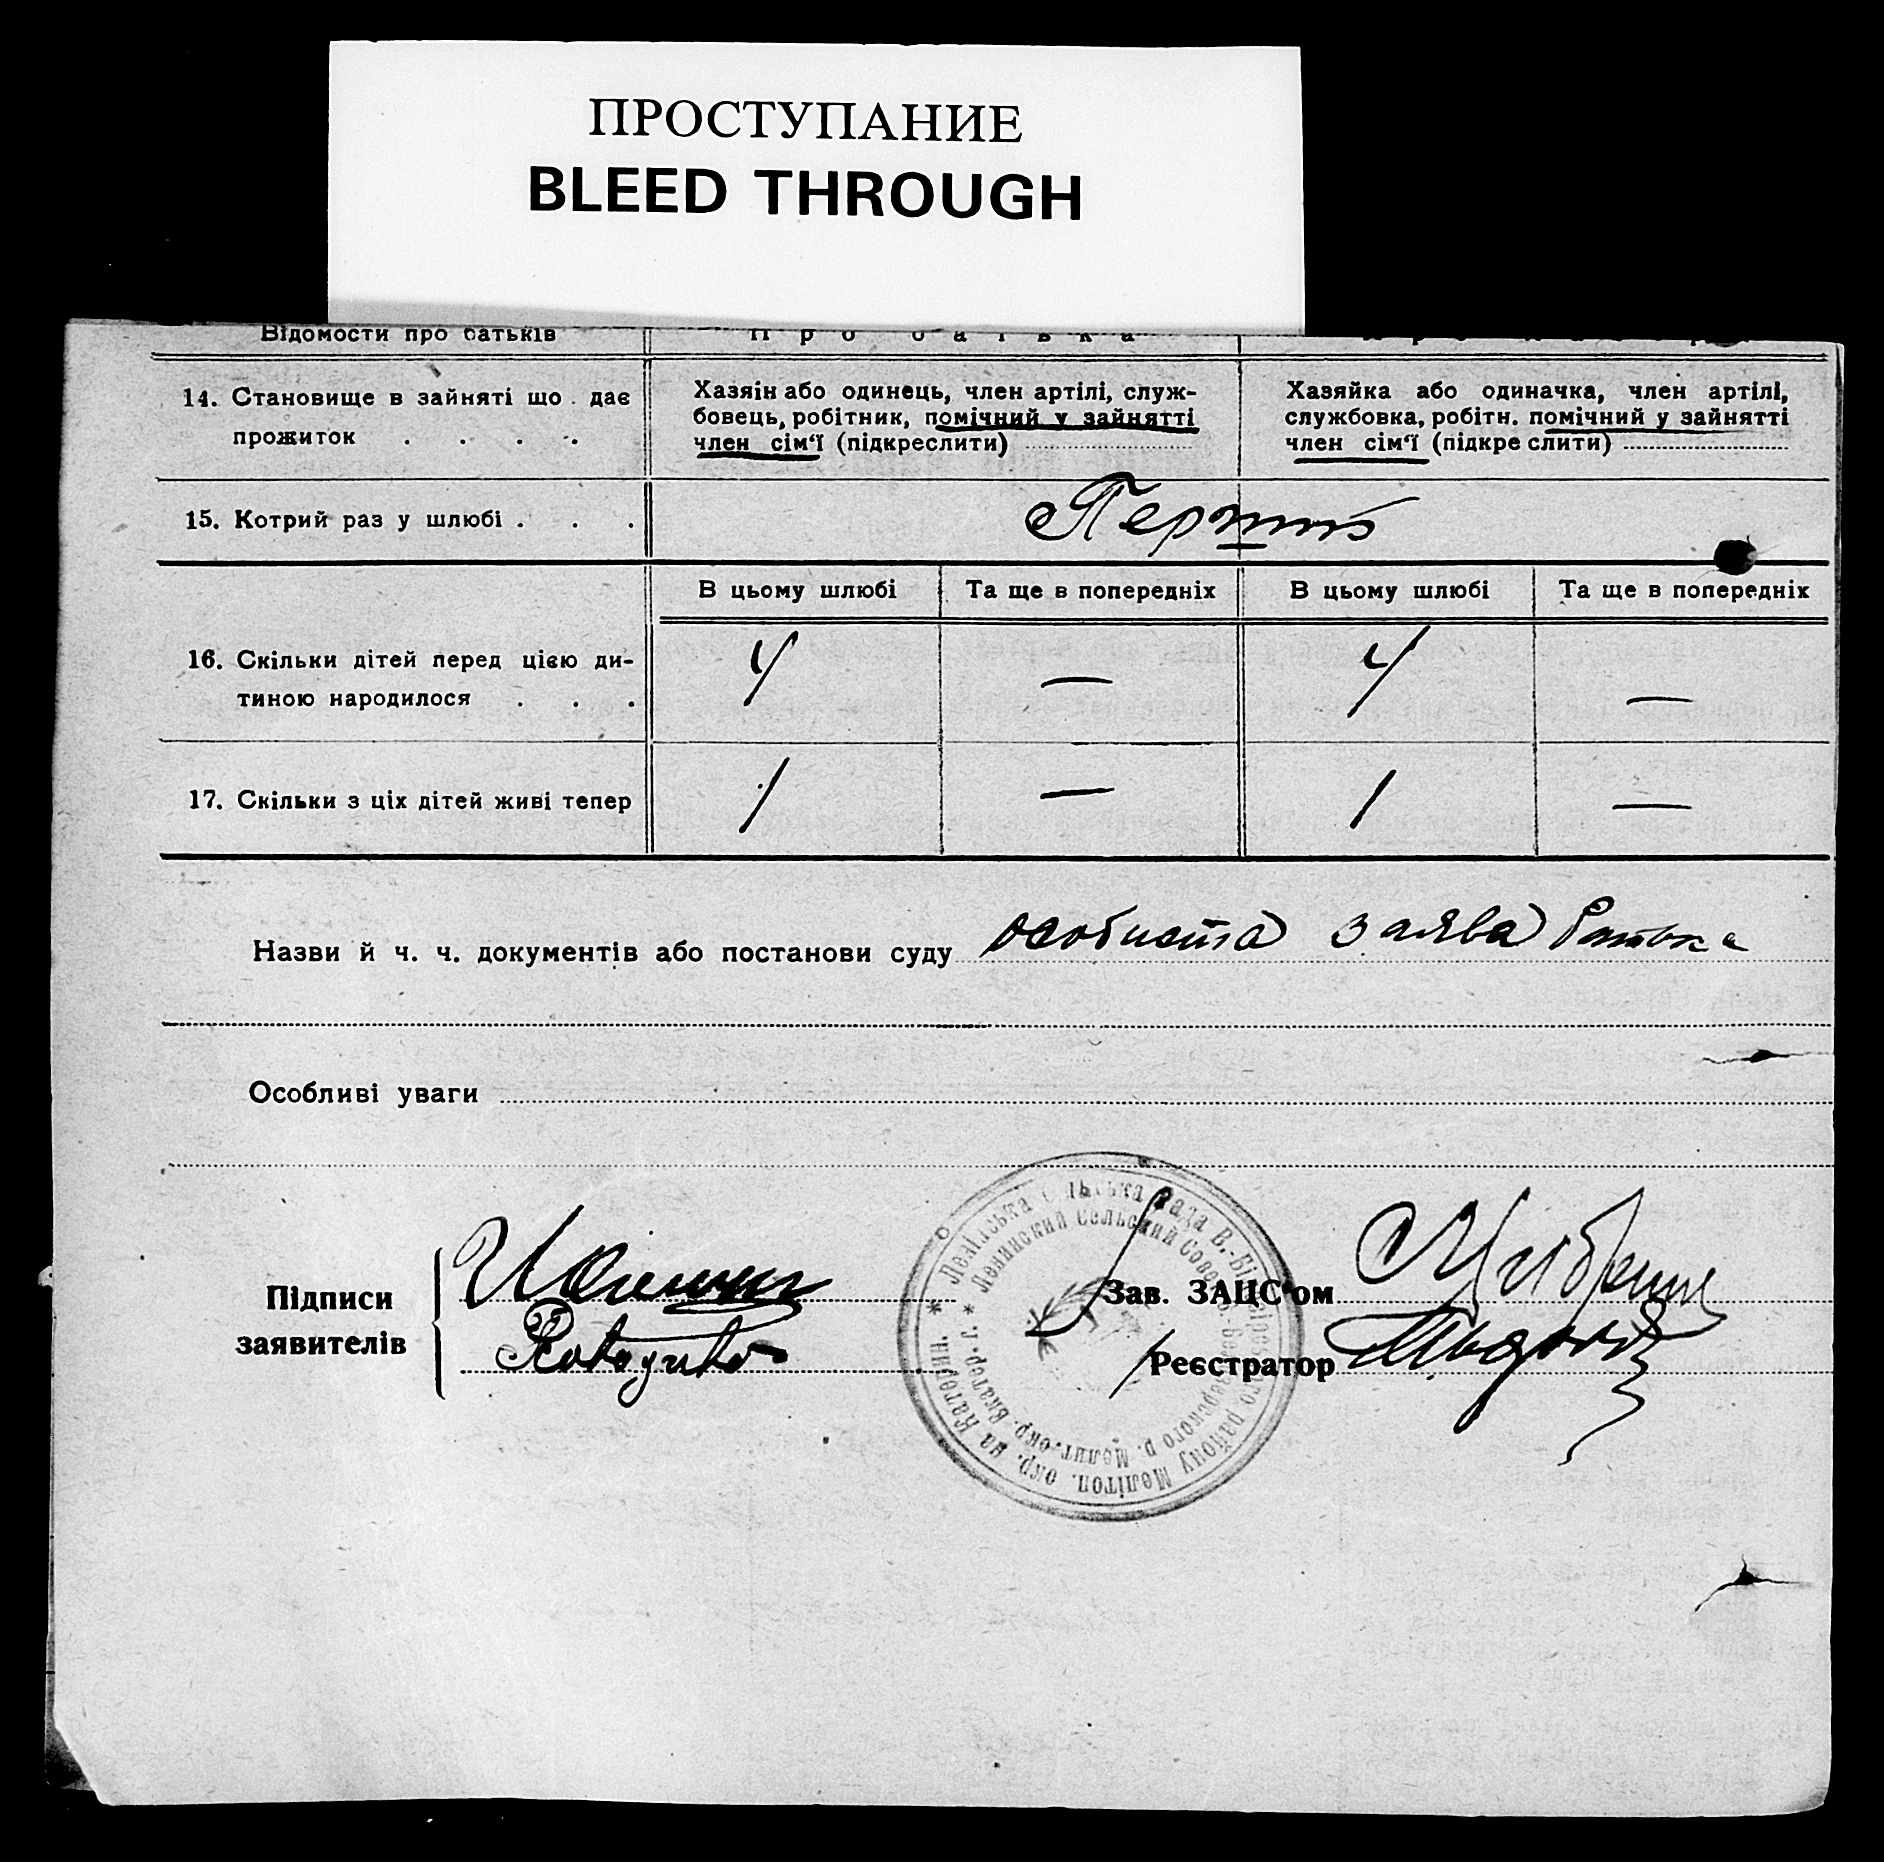 ПРОСТУПАНИЕ
BLEED THROUGH
Відомости про батьків
Про батька
14. Становище в зайняті що дає
прожиток . . . .
Хазяін або одинець, член артілі, служ-
бовець, робітник, помічний у зайнятті
член сім'ї (підкреслити)
Хазяйка або одиначка, член артілі,
службовка, робітн. помічний у зайнятті
член сім'ї (підкре слити)
15. Котрий раз у шлюбі . . .
Перший
В цьому шлюбі
Та ще в попередніх
В цьому шлюбі
Та ще в попередніх
16. Скільки дітей перед цією ди-
тиною народилося . . .
4
—
4
—
17. Скільки з ціх дітей живі тепер
1
—
1
—
Назви й ч. ч. документів або постанови суду особиста заява батька
Особливі уваги
Підписи
заявителів
Зав. ЗАЦС'ом
Реєстратор
Ленінська Сільська Рада В.-Білозірського району Мелітоп. окр. на Катерин.
Ленинский Сельский Совет В.-Белозерского р. Мелит. окр. Екатер. г.